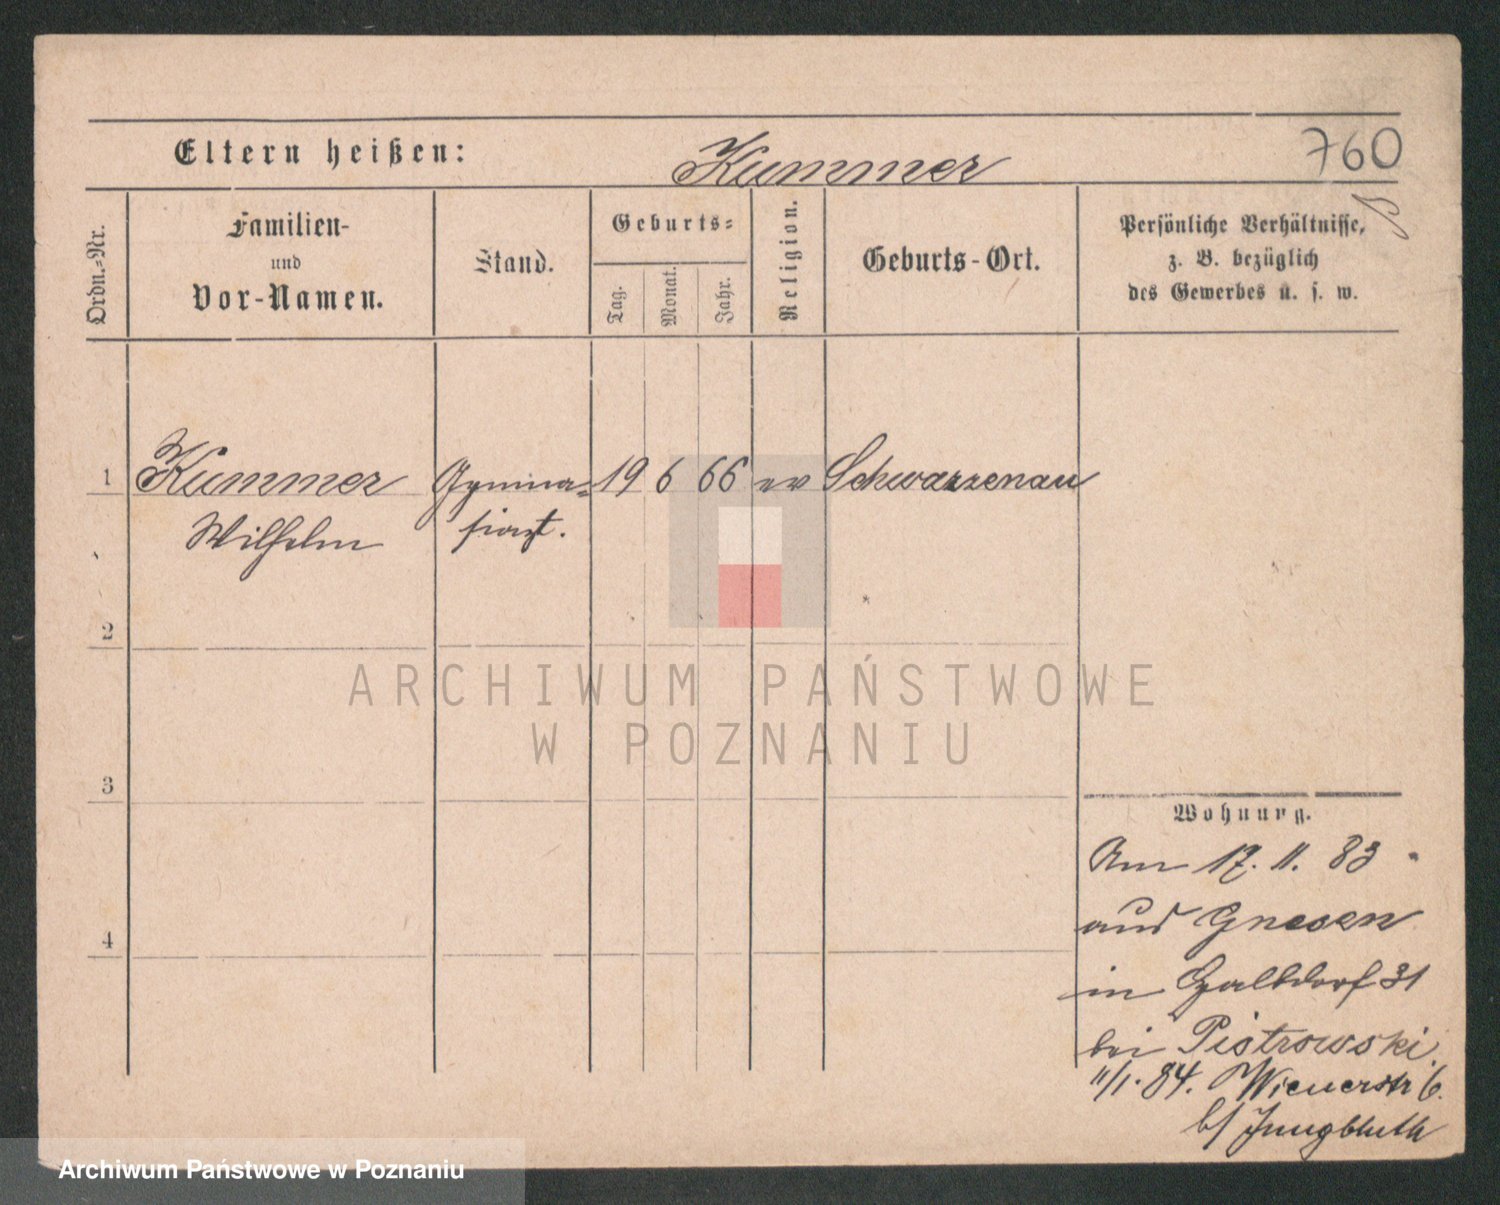 Eltern heißen: Kummer 760
Ordn.-Nr.
Familien-
und
Vor-Namen.
Stand.
Geburts-
Tag.
Monat.
Jahr.
Religion.
Geburts-Ort.
Persönliche Verhältnisse,
z. B. bezüglich
des Gewerbes u. s. w.
1 Kummer Gymna- 19 6 66 ev Schwarzenau
Wilhelm siast.
2
3
4
Wohnung.
Am 17. 11. 83
aus Gnesen
in Halbdorf 31
bei Piotrowski
11/1. 84. Wienerstr 6.
b/ Jungbluth
ARCHIWUM PAŃSTWOWE
W POZNANIU
Archiwum Państwowe w Poznaniu